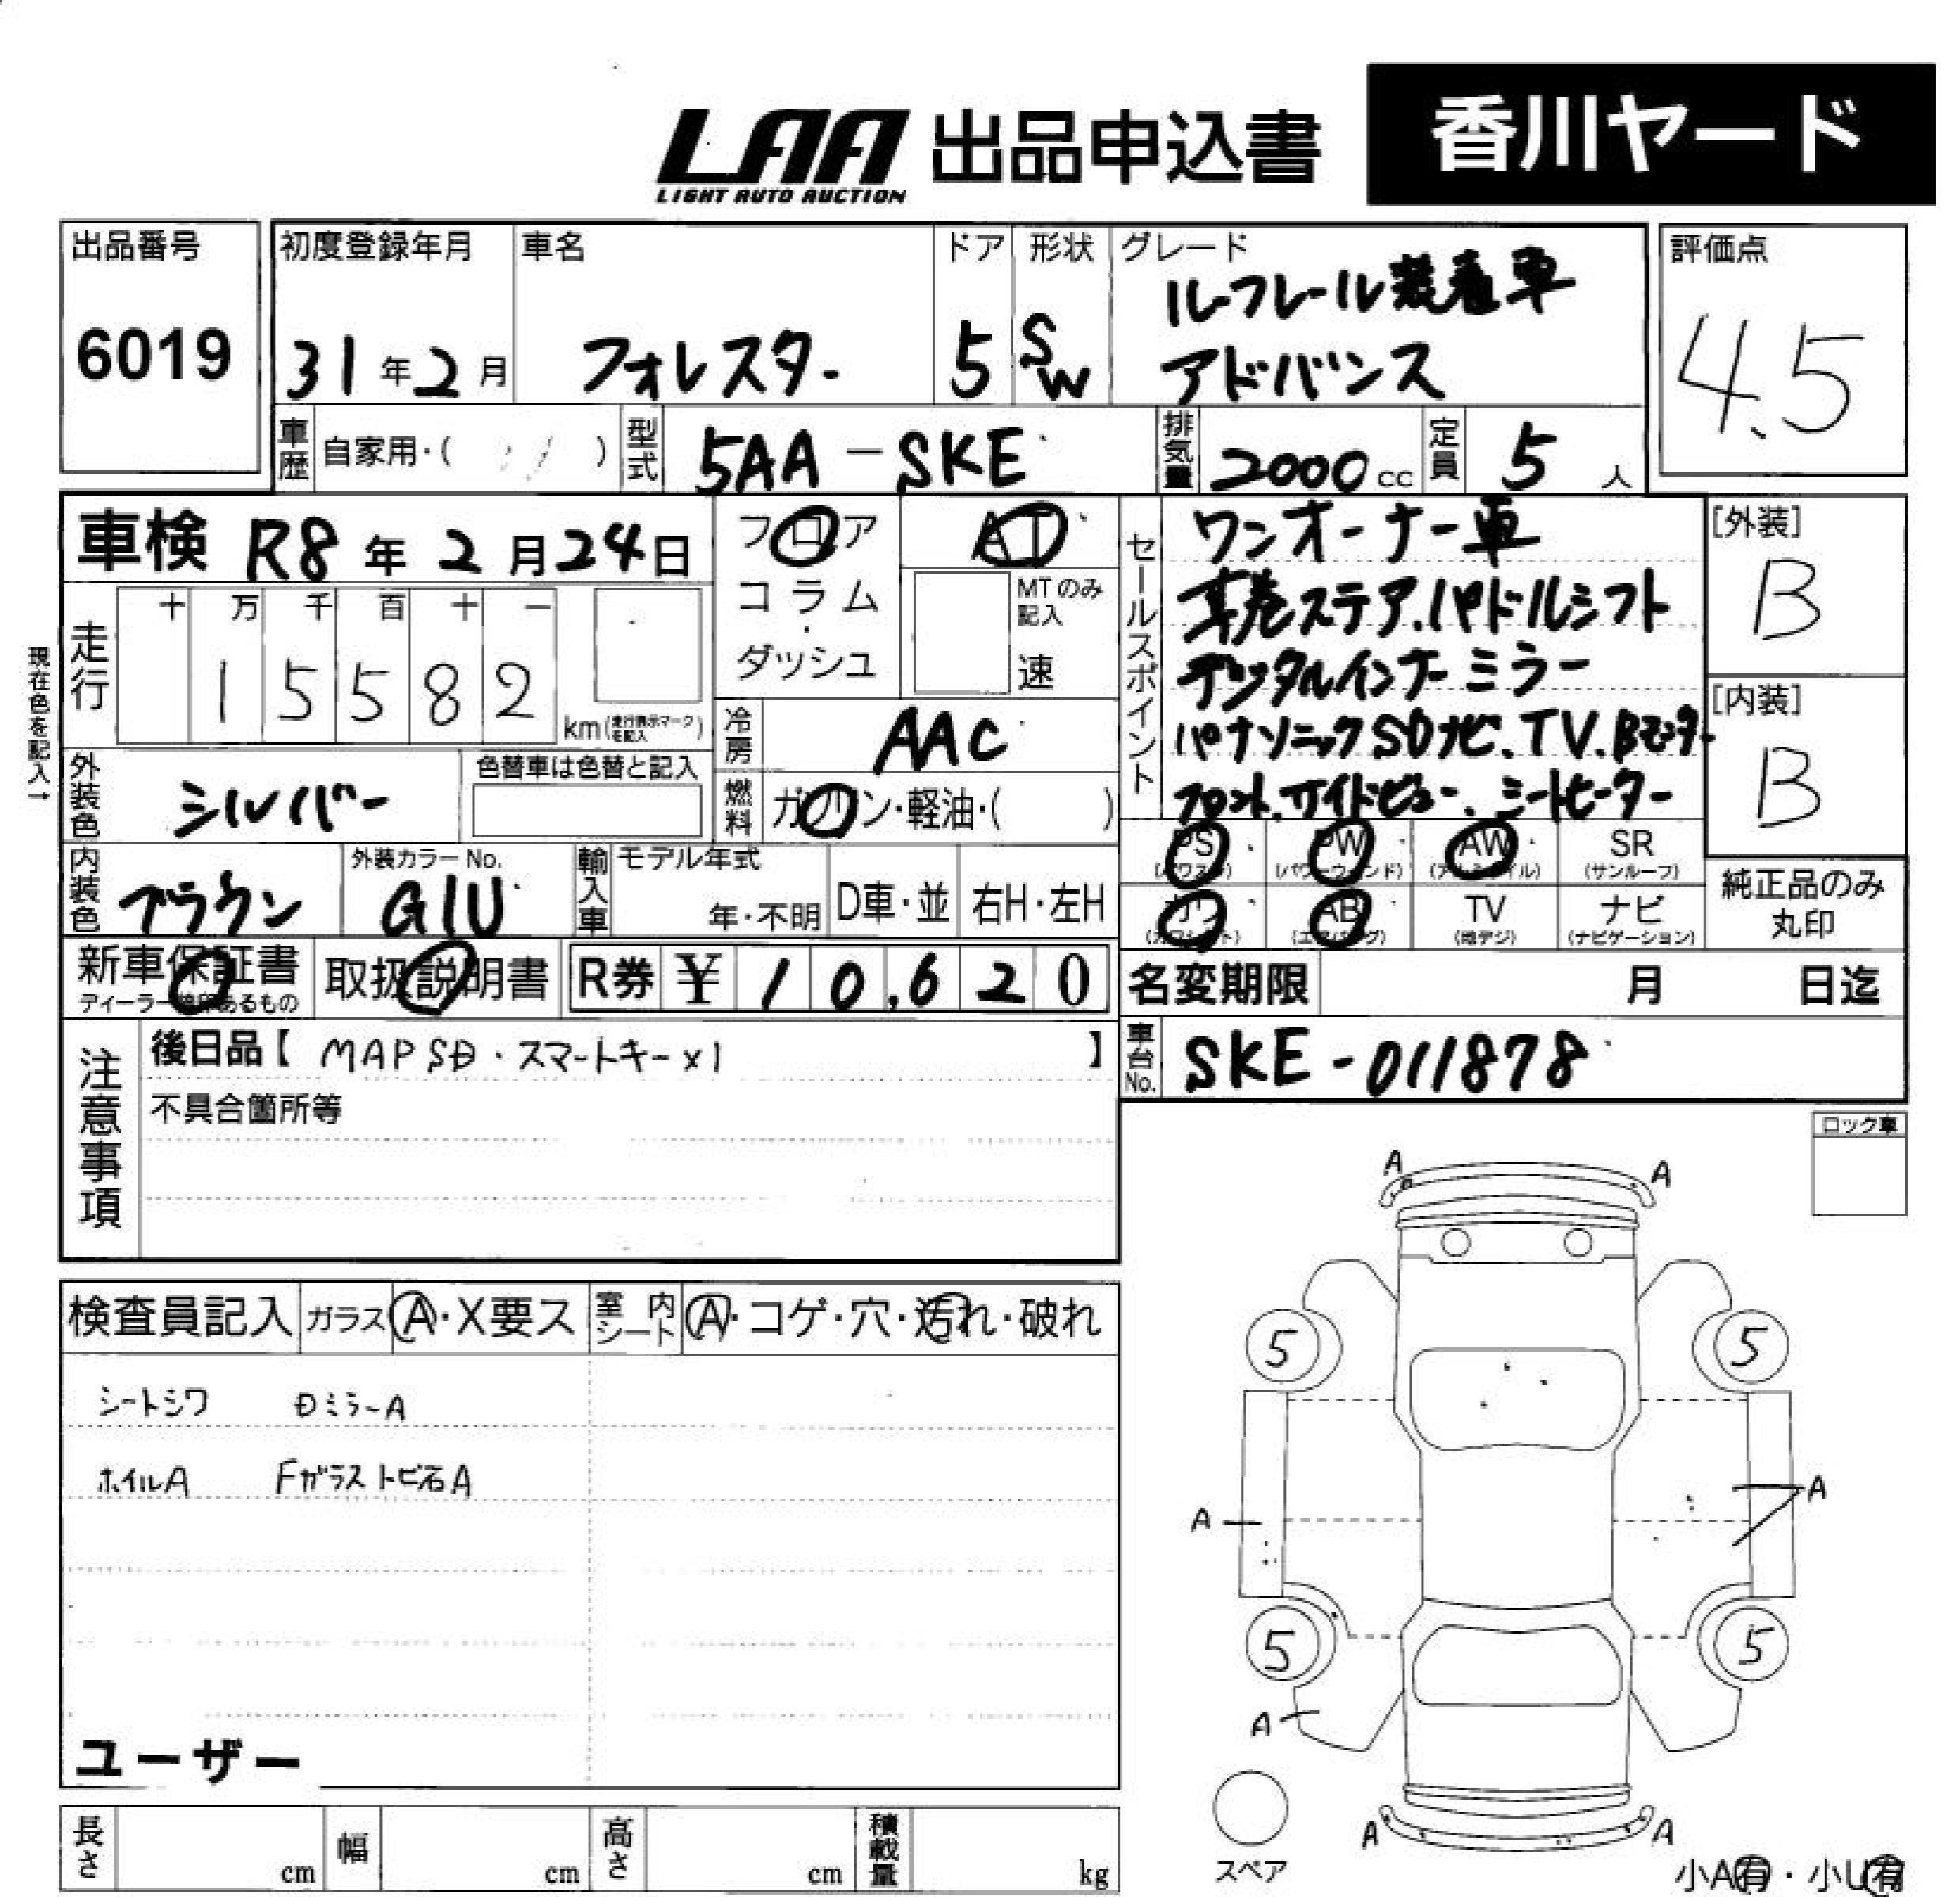 LAA 出品申込書 香川ヤード
LIGHT AUTO AUCTION
出品番号
6019
初度登録年月
31年2月
車名
フォレスター
ドア
5
形状
SW
グレード
ルーフレール装着車
アドバンス
評価点
4.5
車歴 自家用・( )
型式 5AA-SKE
排気量 2000cc
定員 5人
車検 R8年2月24日
フロア
コラム
・
ダッシュ
AT
MTのみ
記入
速
現在色を記入→
走行
十 万 千 百 十 一
15582
km(走行表示マークを記入)
冷房 AAC
外装色 シルバー
色替車は色替と記入
燃料 ガソリン・軽油・( )
セールスポイント
ワンオーナー車
革巻ステア.パドルシフト
デジタルインナーミラー
パナソニックSDナビ、TV、Bモニター
フロント、サイドビュー、シートヒーター
[外装]
B
[内装]
B
内装色 ブラウン
外装カラーNo.
G1U
輸入車 モデル年式
年・不明 D車・並 右H・左H
PS
(パワステ)
PW
(パワーウィンド)
AW
(アルミホイル)
SR
(サンルーフ)
カワ
(カワシート)
AB
(エアバッグ)
TV
(地デジ)
ナビ
(ナビゲーション)
純正品のみ
丸印
新車保証書
ディーラー捺印あるもの
取扱説明書
R券 ¥10,620
名変期限 月 日迄
車台No. SKE-011878
注意事項
後日品【 MAPSD・スマートキー×1 】
不具合箇所等
ロック車
検査員記入 ガラス A・X要ス 室内シート A・コゲ・穴・汚れ・破れ
シートシワ Dミラ-A
ホイルA Fガラス トビ石A
ユーザー
長さ cm 幅 cm 高さ cm 積載量 kg
A A
5 5
A
A
5 5
A
A A
スペア
小A有・小U有